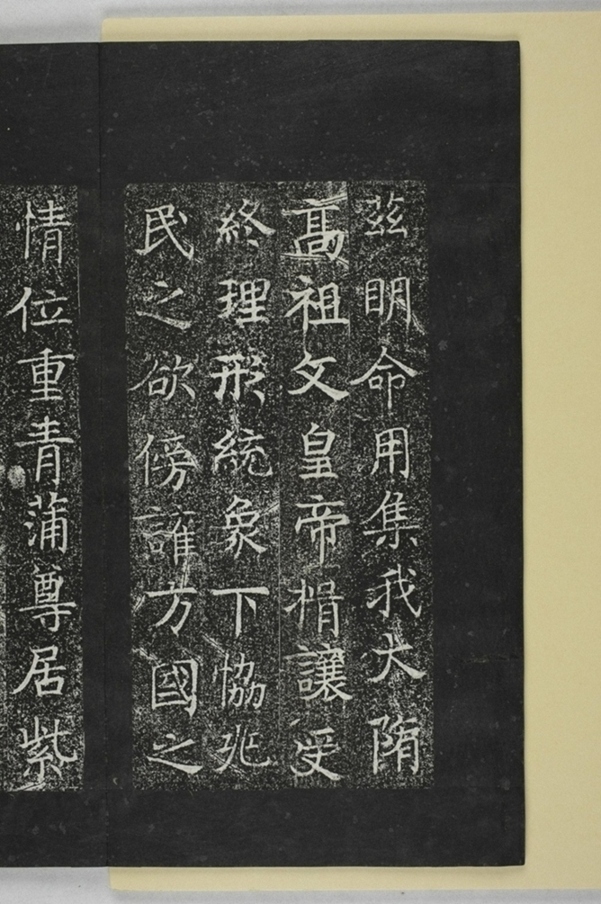 茲明命用集我大隋
高祖文皇帝揖讓受
終理形統象下協兆
民之欲傍讙方國之
情位重青蒲尊居紫